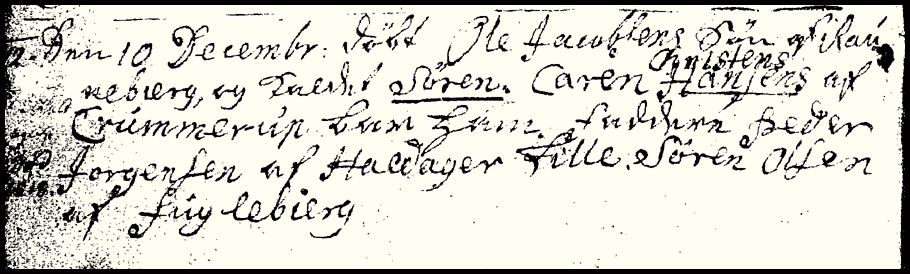 2. Den 10 Decembr: döbt Ole Jacobsens Sön af Rau
nebierg, og kaldet Sören. Caren Christens Hansens af
Crummerup bar ham. Faddere Peder
Jörgensen af Haldager Lille. Sören Olsen
af Fuglebierg